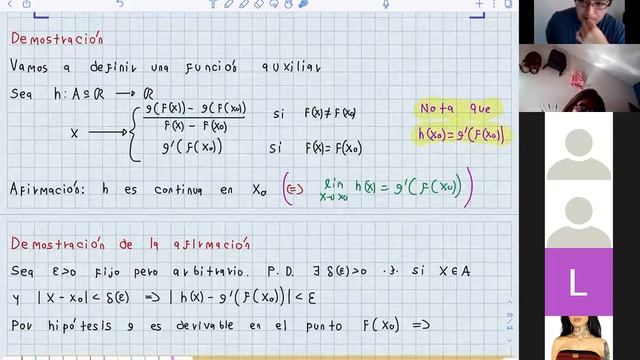 Demostración
Vamos a definir una función auxiliar
Sea h: A ⊆ ℝ → ℝ
x → { (g(f(x)) - g(f(x₀))) / (f(x) - f(x₀)) si f(x) ≠ f(x₀)
g'(f(x₀)) si f(x) = f(x₀)
Nota que
h(x₀) = g'(f(x₀))
Afirmación: h es continua en x₀ (⇔ lim x→x₀ h(x) = g'(f(x₀)))
Demostración de la afirmación
Sea ε>0 fijo pero arbitrario. P.D. ∃ δ(ε)>0 .z. si x ∈ A
y |x - x₀| < δ(ε) ⇒ |h(x) - g'(f(x₀))| < ε
Por hipótesis g es derivable en el punto f(x₀) ⇒
L